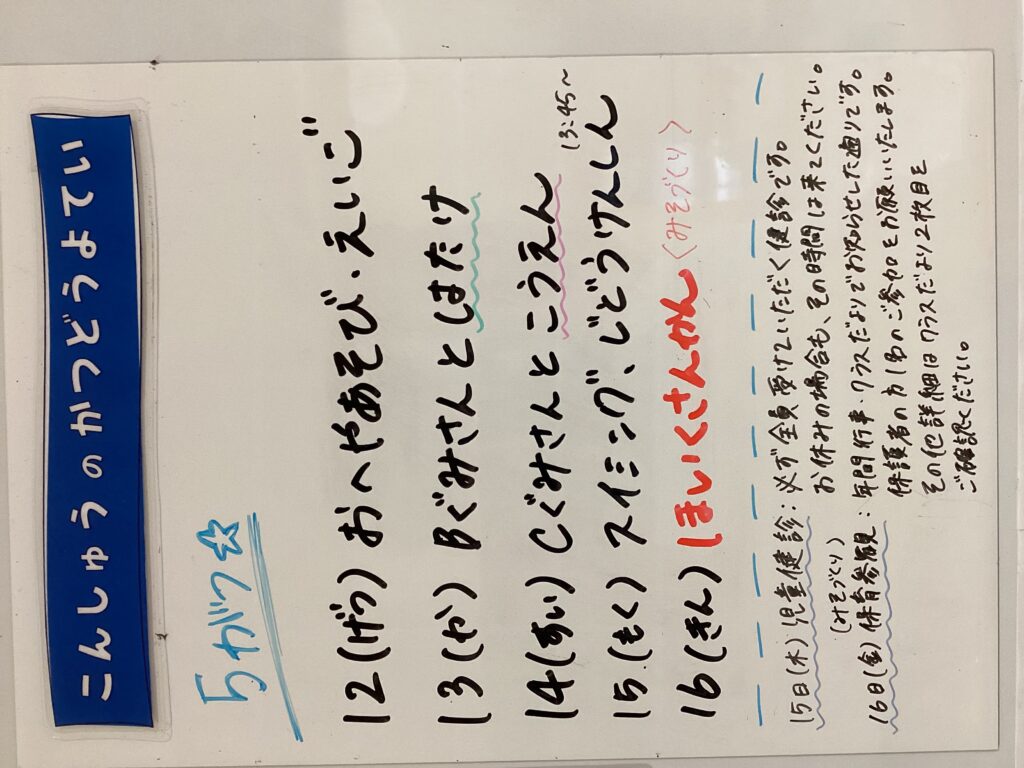 こんしゅうのかつどうよてい
5がつ☆
12(げつ) おへやあそび・えいご
13(か) Bぐみさんとはたけ
14(すい) Cぐみさんとこうえん
15(もく) スイミング、じどうけんしん 13:45〜
16(きん) ほいくさんかん〈みそづくり〉
15日(木)児童健診：必ず全員受けていただく健診です。
お休みの場合も、その時間は来てください。
(みそづくり)
16日(金)保育参観：年間行事・クラスだよりでお知らせした通りです。
保護者の方1名のご参加をお願いいたします。
その他詳細はクラスだより2枚目を
ご確認ください。